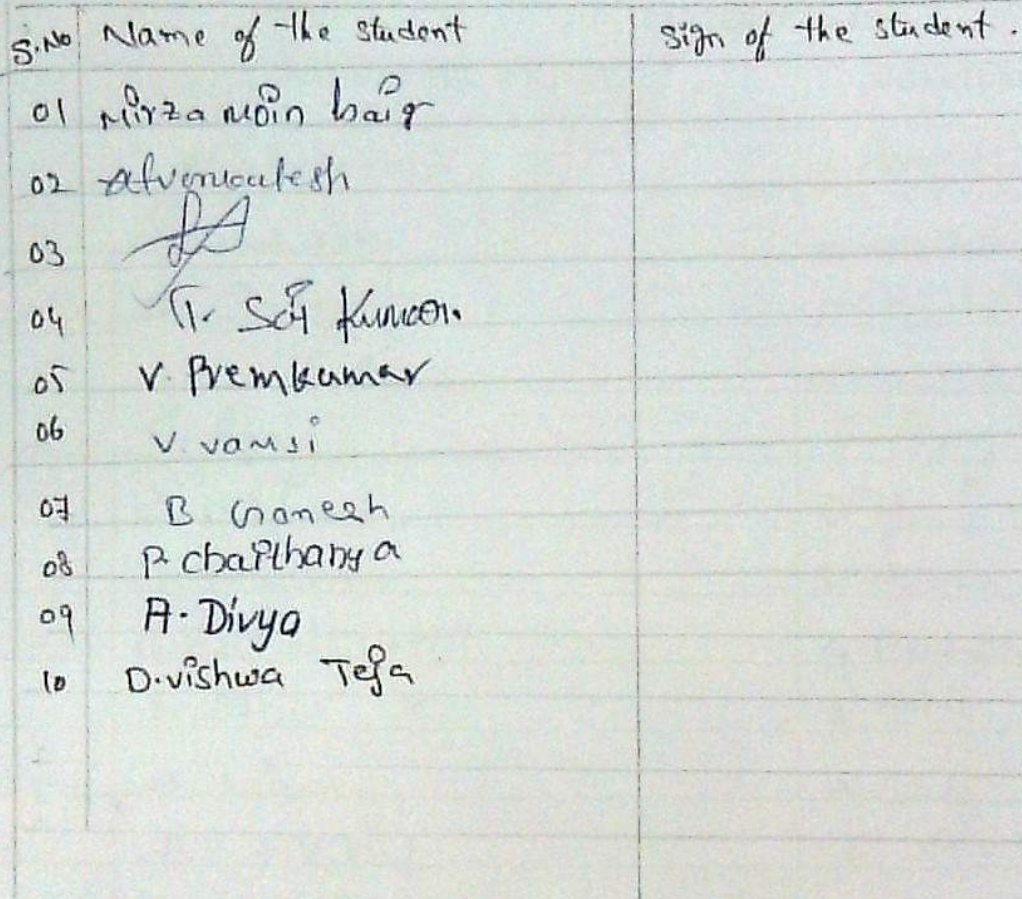 S.No Name of the student Sign of the student.
01 Mirza moin baig
02
03
04 T. Sai Kumar.
05 V. Premkumar
06 V. vamsi
07 B Ganesh
08 P. chaithanya
09 A. Divya
10 D. vishwa Teja